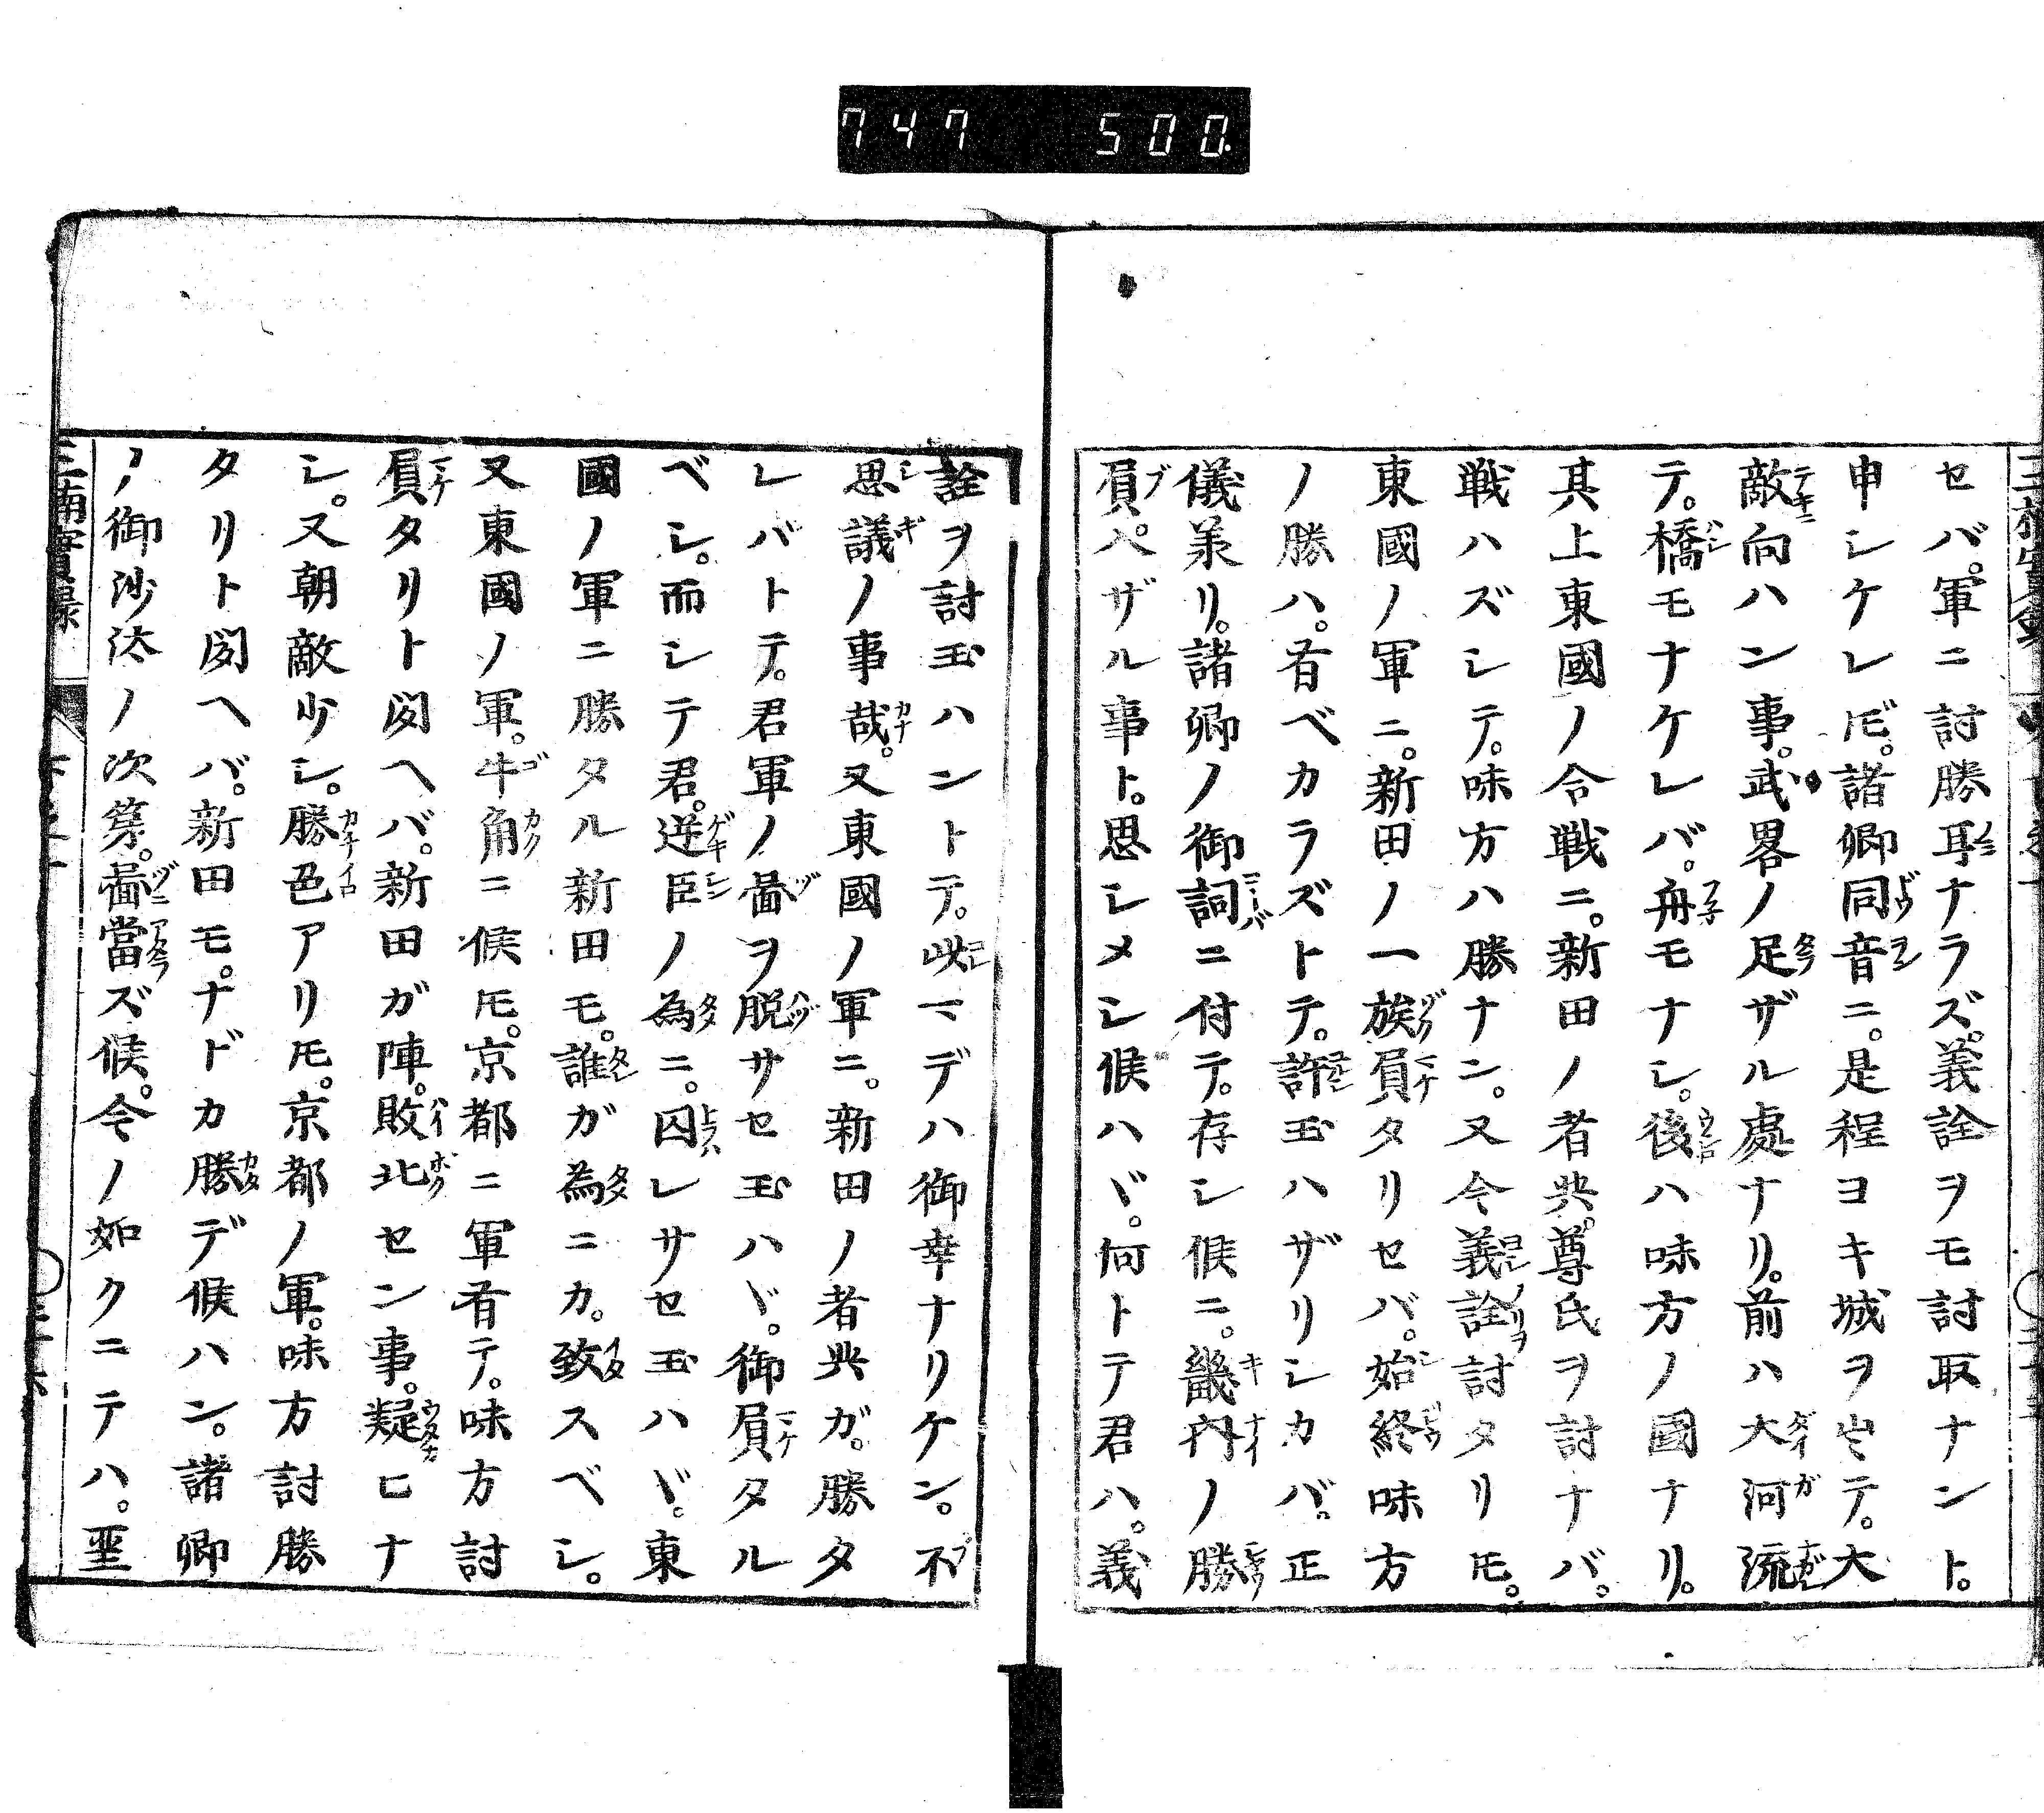 747 500.
セバ。軍ニ討勝耳ナラズ。義詮ヲモ討取ナント。
申シケレ𪜈。諸卿同音ニ。是程ヨキ城ヲ出テ。大
敵向ハン事。武畧ノ足ザル處ナリ。前ハ大河流
テ。橋モナケレバ。舟モナシ。後ハ味方ノ國ナリ。
其上東國ノ合戦ニ。新田ノ者共。尊氏ヲ討ナバ。
戦ハズシテ。味方ハ勝ナン。又今義詮討タリ𪜈。
東國ノ軍ニ。新田ノ一族負タリセバ。始終味方
ノ勝ハ。有ベカラズトテ。許玉ハザリシカバ。正
儀来リ。諸卿ノ御詞ニ付テ。存シ候ニ。畿内ノ勝
負ハ。ザル事ト。思シメシ候ハヾ。何トテ君ハ。義
詮ヲ討玉ハントテ。此マデハ御幸ナリケン。不
思議ノ事哉。又東國ノ軍ニ。新田ノ者共ガ。勝タ
レバトテ。君軍ノ啚ヲ脱サセ玉ハヾ。御負タル
ベシ。而シテ君。逆臣ノ為ニ。囚レサセ玉ハヾ。東
國ノ軍ニ勝タル新田モ。誰ガ為ニカ。致スベシ。
又東國ノ軍。牛角ニ候𪜈。京都ニ軍有テ。味方討
負タリト聞ヘバ。新田ガ陣。敗北セン事。疑ヒナ
シ。又朝敵少シ。勝色アリ𪜈。京都ノ軍。味方討勝
タリト聞ヘバ。新田モ。ナドカ勝デ候ハン。諸卿
ノ御沙汰ノ次第。啚當ズ候。今ノ如クニテハ。聖